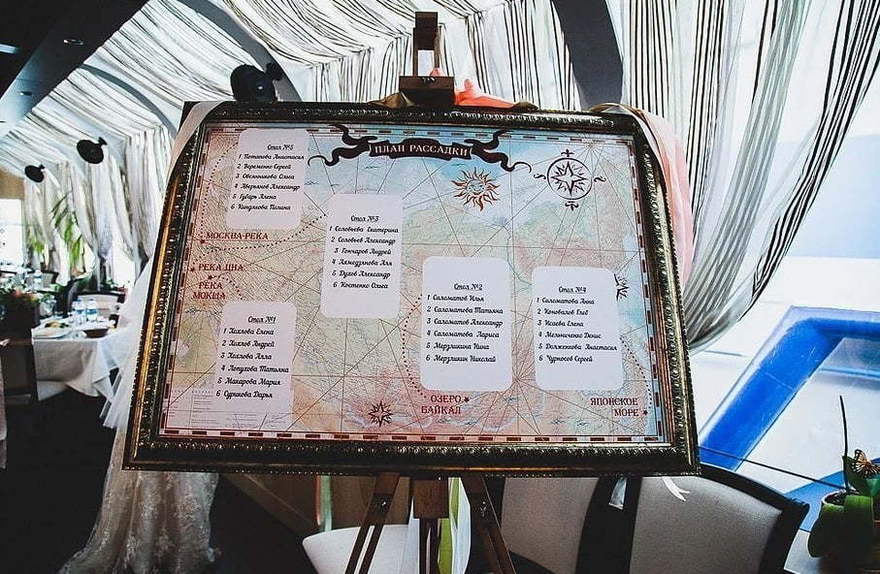 ПЛАН РАССАДКИ
Стол №5
1 Потапова Анастасия
2 Веременко Сергей
3 Овсянникова Ольга
4 Аверьянов Александр
5 Губарь Алена
6 Киндякова Полина
МОСКВА-РЕКА
РЕКА ЦНА
РЕКА
МОКША
Стол №1
1 Хохлова Елена
2 Хохлов Андрей
3 Хохлова Алла
4 Лопухова Татьяна
5 Макарова Мария
6 Сурикова Дарья
Стол №3
1 Соловьева Екатерина
2 Соловьев Александр
3 Гончаров Андрей
4 Ахмедзянова Аля
5 Духов Александр
6 Костенко Ольга
Стол №2
1 Саломатов Илья
2 Саломатова Татьяна
3 Саломатов Александр
4 Саломатова Лариса
5 Мерзликина Нина
6 Мерзликин Николай
ОЗЕРО
БАЙКАЛ
Стол №4
1 Саломатова Анна
2 Коновалов Глеб
3 Исаева Елена
4 Мельниченко Денис
5 Долженкова Анастасия
6 Чурносов Сергей
ЯПОНСКОЕ
МОРЕ